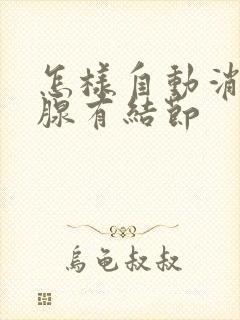 怎樣自動消
腺有結節
烏龜叔叔